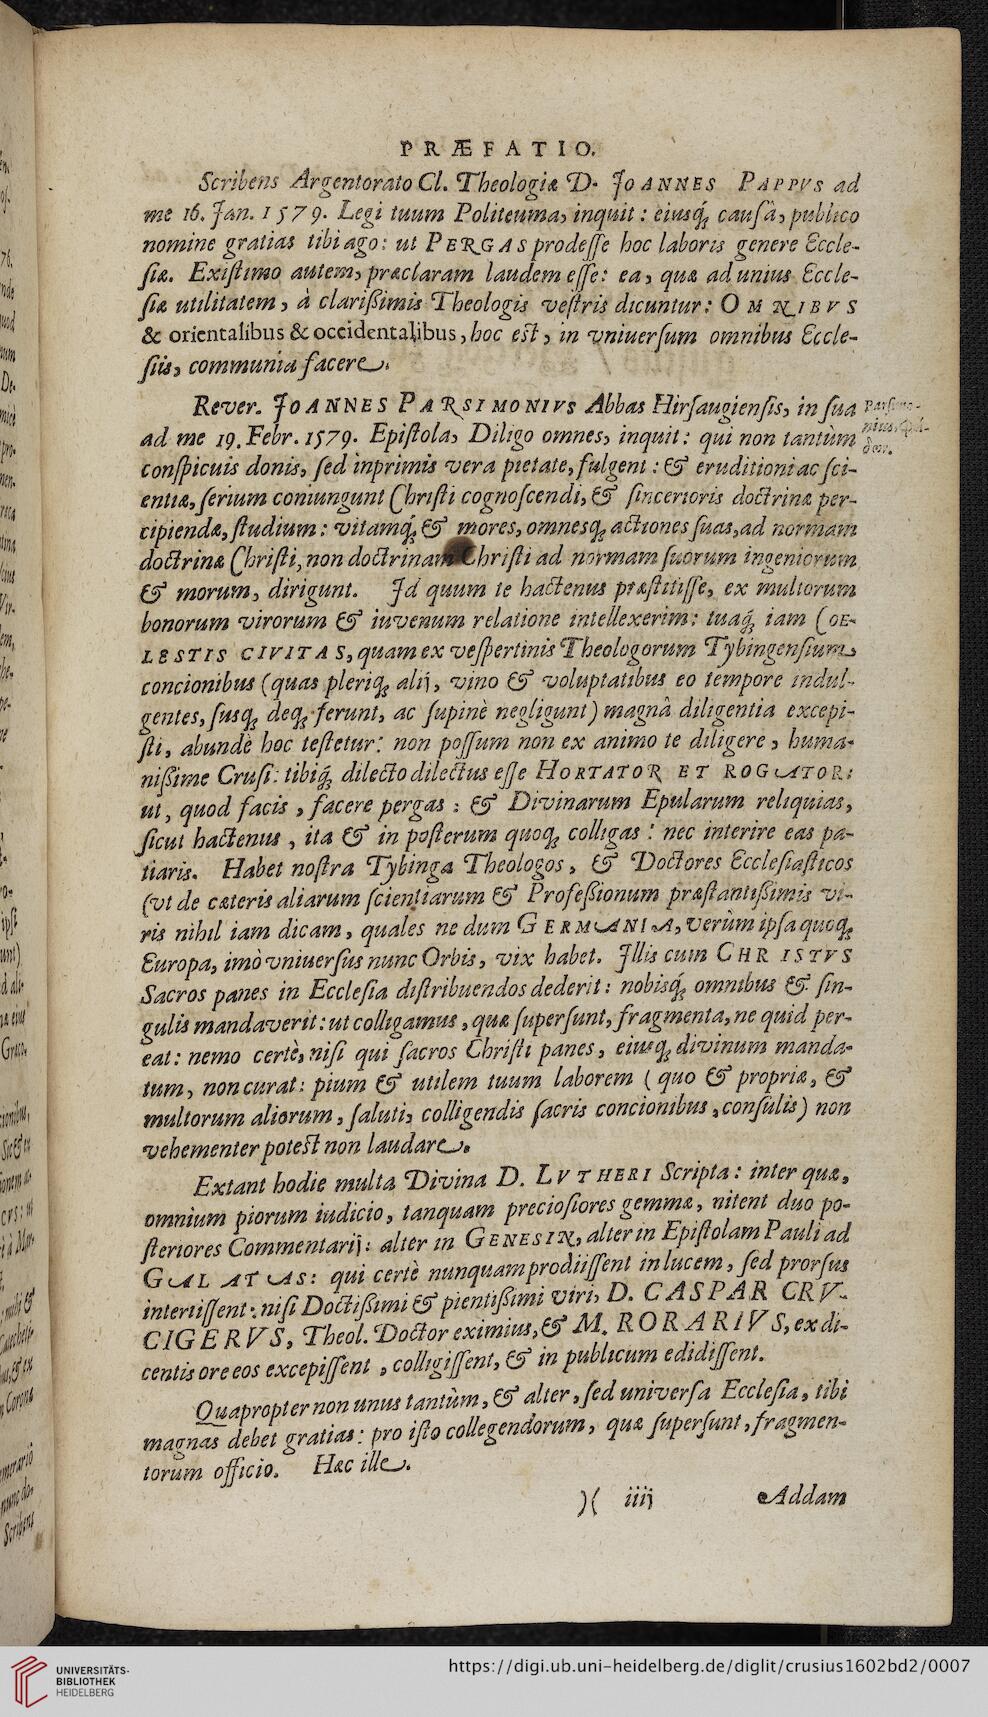 PRÆFATIO.
Scribens Argentorato Cl. Theologiæ D. JOANNES PAPPVS ad
me 16. Jan. 1579. Legi tuum Politeuma, inquit: eiusq́; causâ, publico
nomine gratias tibi ago: ut PERGAS prodesse hoc laboris genere Eccle-
siæ. Existimo autem, præclaram laudem esse: ea, quæ ad unius Eccle-
siæ utilitatem, à clarißimis Theologis vestris dicuntur: OMNIBVS
& orientalibus & occidentalibus, hoc est, in vniuersum omnibus Eccle-
siis, communia facere.
Rever. JOANNES PARSIMONIVS Abbas Hirsaugiensis, in sua
ad me 19. Febr. 1579. Epistola, Diligo omnes, inquit: qui non tantùm
conspicuis donis, sed inprimis vera pietate, fulgent: & eruditioni ac sci-
entiæ, serium coniungunt Christi cognoscendi, & sincerioris doctrinæ per-
cipiendæ, studium: vitamq́; & mores, omnesq; actiones suas, ad normam
doctrinæ Christi, non doctrinam Christi ad normam suorum ingeniorum
& morum, dirigunt. Jd quum te hactenus præstitisse, ex multorum
bonorum virorum & iuvenum relatione intellexerim: tuaq́; iam COE-
LESTIS CIVITAS, quam ex vespertinis Theologorum Tybingensium
concionibus (quas pleriq; alij, vino & voluptatibus eo tempore indul-
gentes, susq; deq; ferunt, ac supinè negligunt) magnâ diligentia excepi-
sti, abundè hoc testetur: non possum non ex animo te diligere, huma-
nißime Crusi: tibiq́; dilecto dilectus esse HORTATOR ET ROGATOR:
ut, quod facis, facere pergas: & Divinarum Epularum reliquias,
sicut hactenus, ita & in posterum quoq; colligas: nec interire eas pa-
tiaris. Habet nostra Tybinga Theologos, & Doctores Ecclesiasticos
(vt de cæteris aliarum scientiarum & Profeßionum præstantißimis vi-
ris nihil iam dicam, quales ne dum GERMANIA, verùm ipsa quoq;
Europa, imò vniuersus nunc Orbis, vix habet. Jllis cum CHRISTVS
Sacros panes in Ecclesia distribuendos dederit: nobisq́; omnibus & sin-
gulis mandaverit: ut colligamus, quæ supersunt, fragmenta, ne quid per-
eat: nemo certè, nisi qui sacros Christi panes, eiusq; divinum manda-
tum, non curat: pium & utilem tuum laborem (quo & propriæ, &
multorum aliorum, saluti, colligendis sacris concionibus, consulis) non
vehementer potest non laudare.
Extant hodie multa Divina D. LVTHERI Scripta: inter quæ,
omnium piorum iudicio, tanquam preciosiores gemmæ, nitent duo po-
steriores Commentarij: alter in GENESIN, alter in Epistolam Pauli ad
GALATAS: qui certè nunquam prodiissent in lucem, sed prorsus
interiissent: nisi Doctißimi & pientißimi viri, D. CASPAR CRV-
CIGERVS, Theol. Doctor eximius, & M. RORARIVS, ex di-
centis ore eos excepissent, colligissent, & in publicum edidissent.
Quapropter non unus tantùm, & alter, sed universa Ecclesia, tibi
magnas debet gratias: pro isto collegendorum, quæ supersunt, fragmen-
torum officio. Hæc ille.
)( iiij Addam
UNIVERSITÄTS-
BIBLIOTHEK
HEIDELBERG
https://digi.ub.uni-heidelberg.de/diglit/crusius1602bd2/0007